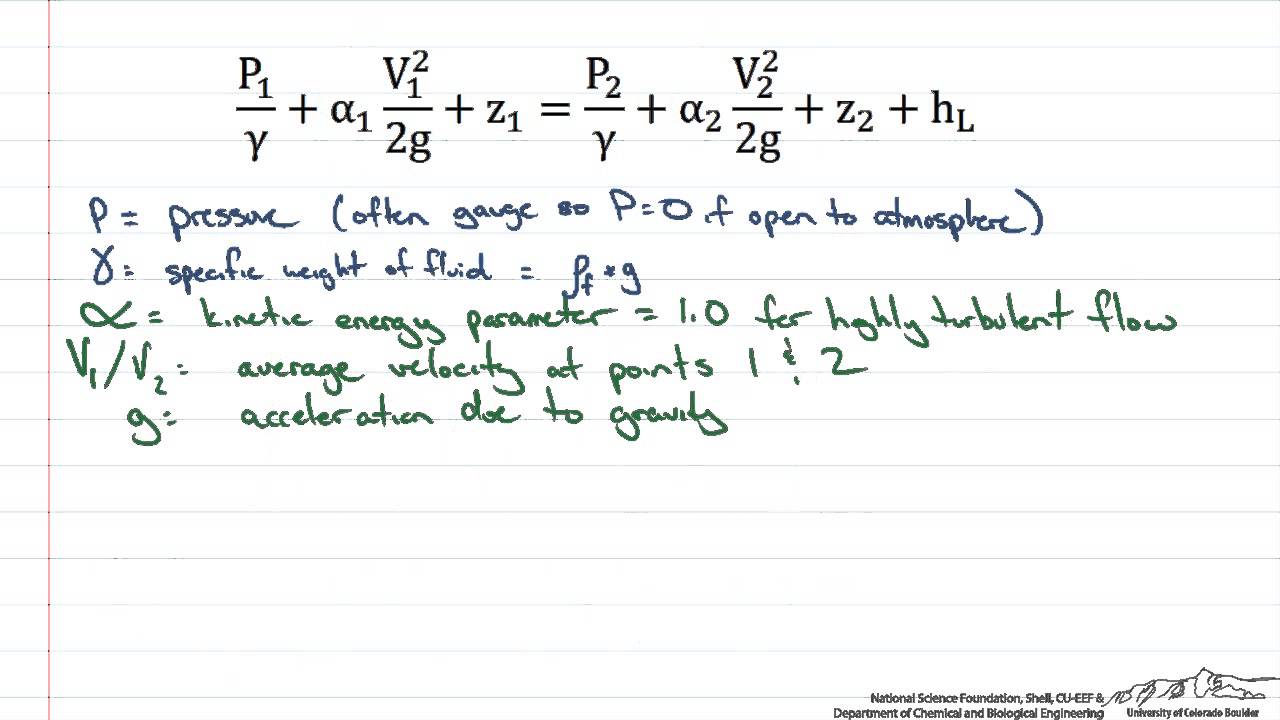 P₁/γ + α₁ V₁²/2g + z₁ = P₂/γ + α₂ V₂²/2g + z₂ + h_L
P = pressure (often gauge so P=0 if open to atmosphere)
γ = specific weight of fluid = ρ_f * g
α = kinetic energy parameter = 1.0 for highly turbulent flow
V₁/V₂ = average velocity at points 1 & 2
g = acceleration due to gravity
National Science Foundation, Shell, CU-EEF &
Department of Chemical and Biological Engineering
University of Colorado Boulder